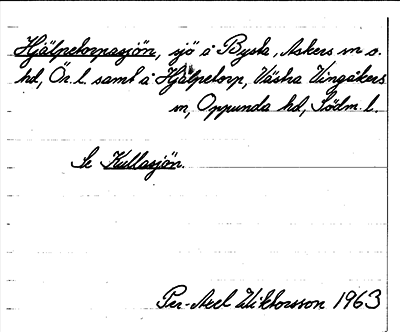 Hjälpetorpasjön, sjö å Bysta, Askers sn o.
hd, Ör. l. samt å Hjälpetorp, Västra Vingåkers
sn, Oppunda hd, Södm. l.
Se Kullasjön.
Per-Axel Wiktorsson 1963